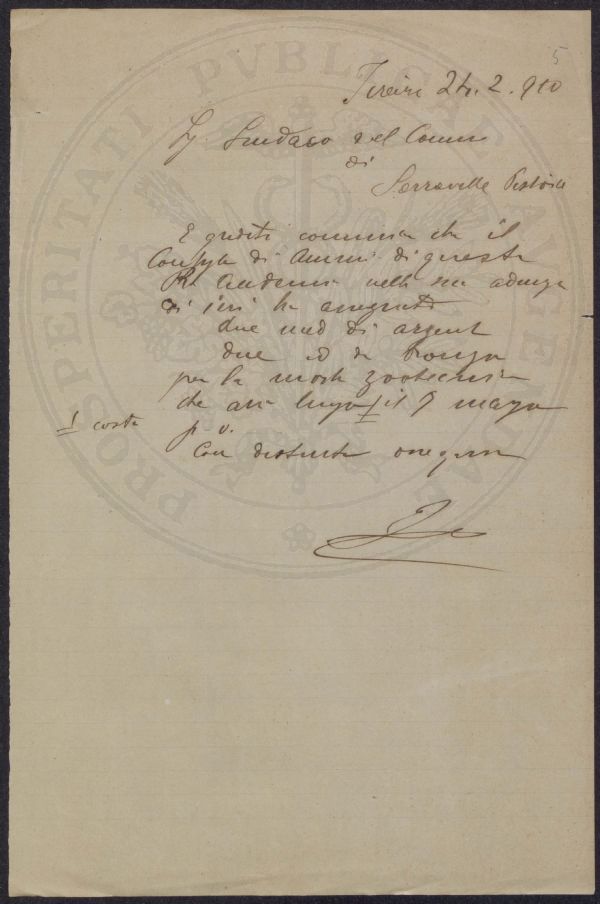 5
Firenze 24. 2. 910
Sig Sindaco del Comune
di
Serravalle Pistoia
È gradito comunicar che il
Consiglio di Ammi di questa
R. Accademia nella sua adunza
di ieri ha assegnato
due med di argent
due id di bronzo
per la mostra zootecnica
che avrà luogo il 9 maggio
1 costà
p v.
Con distinta
PROSPERITATI PVBLICAE AVGENDAE